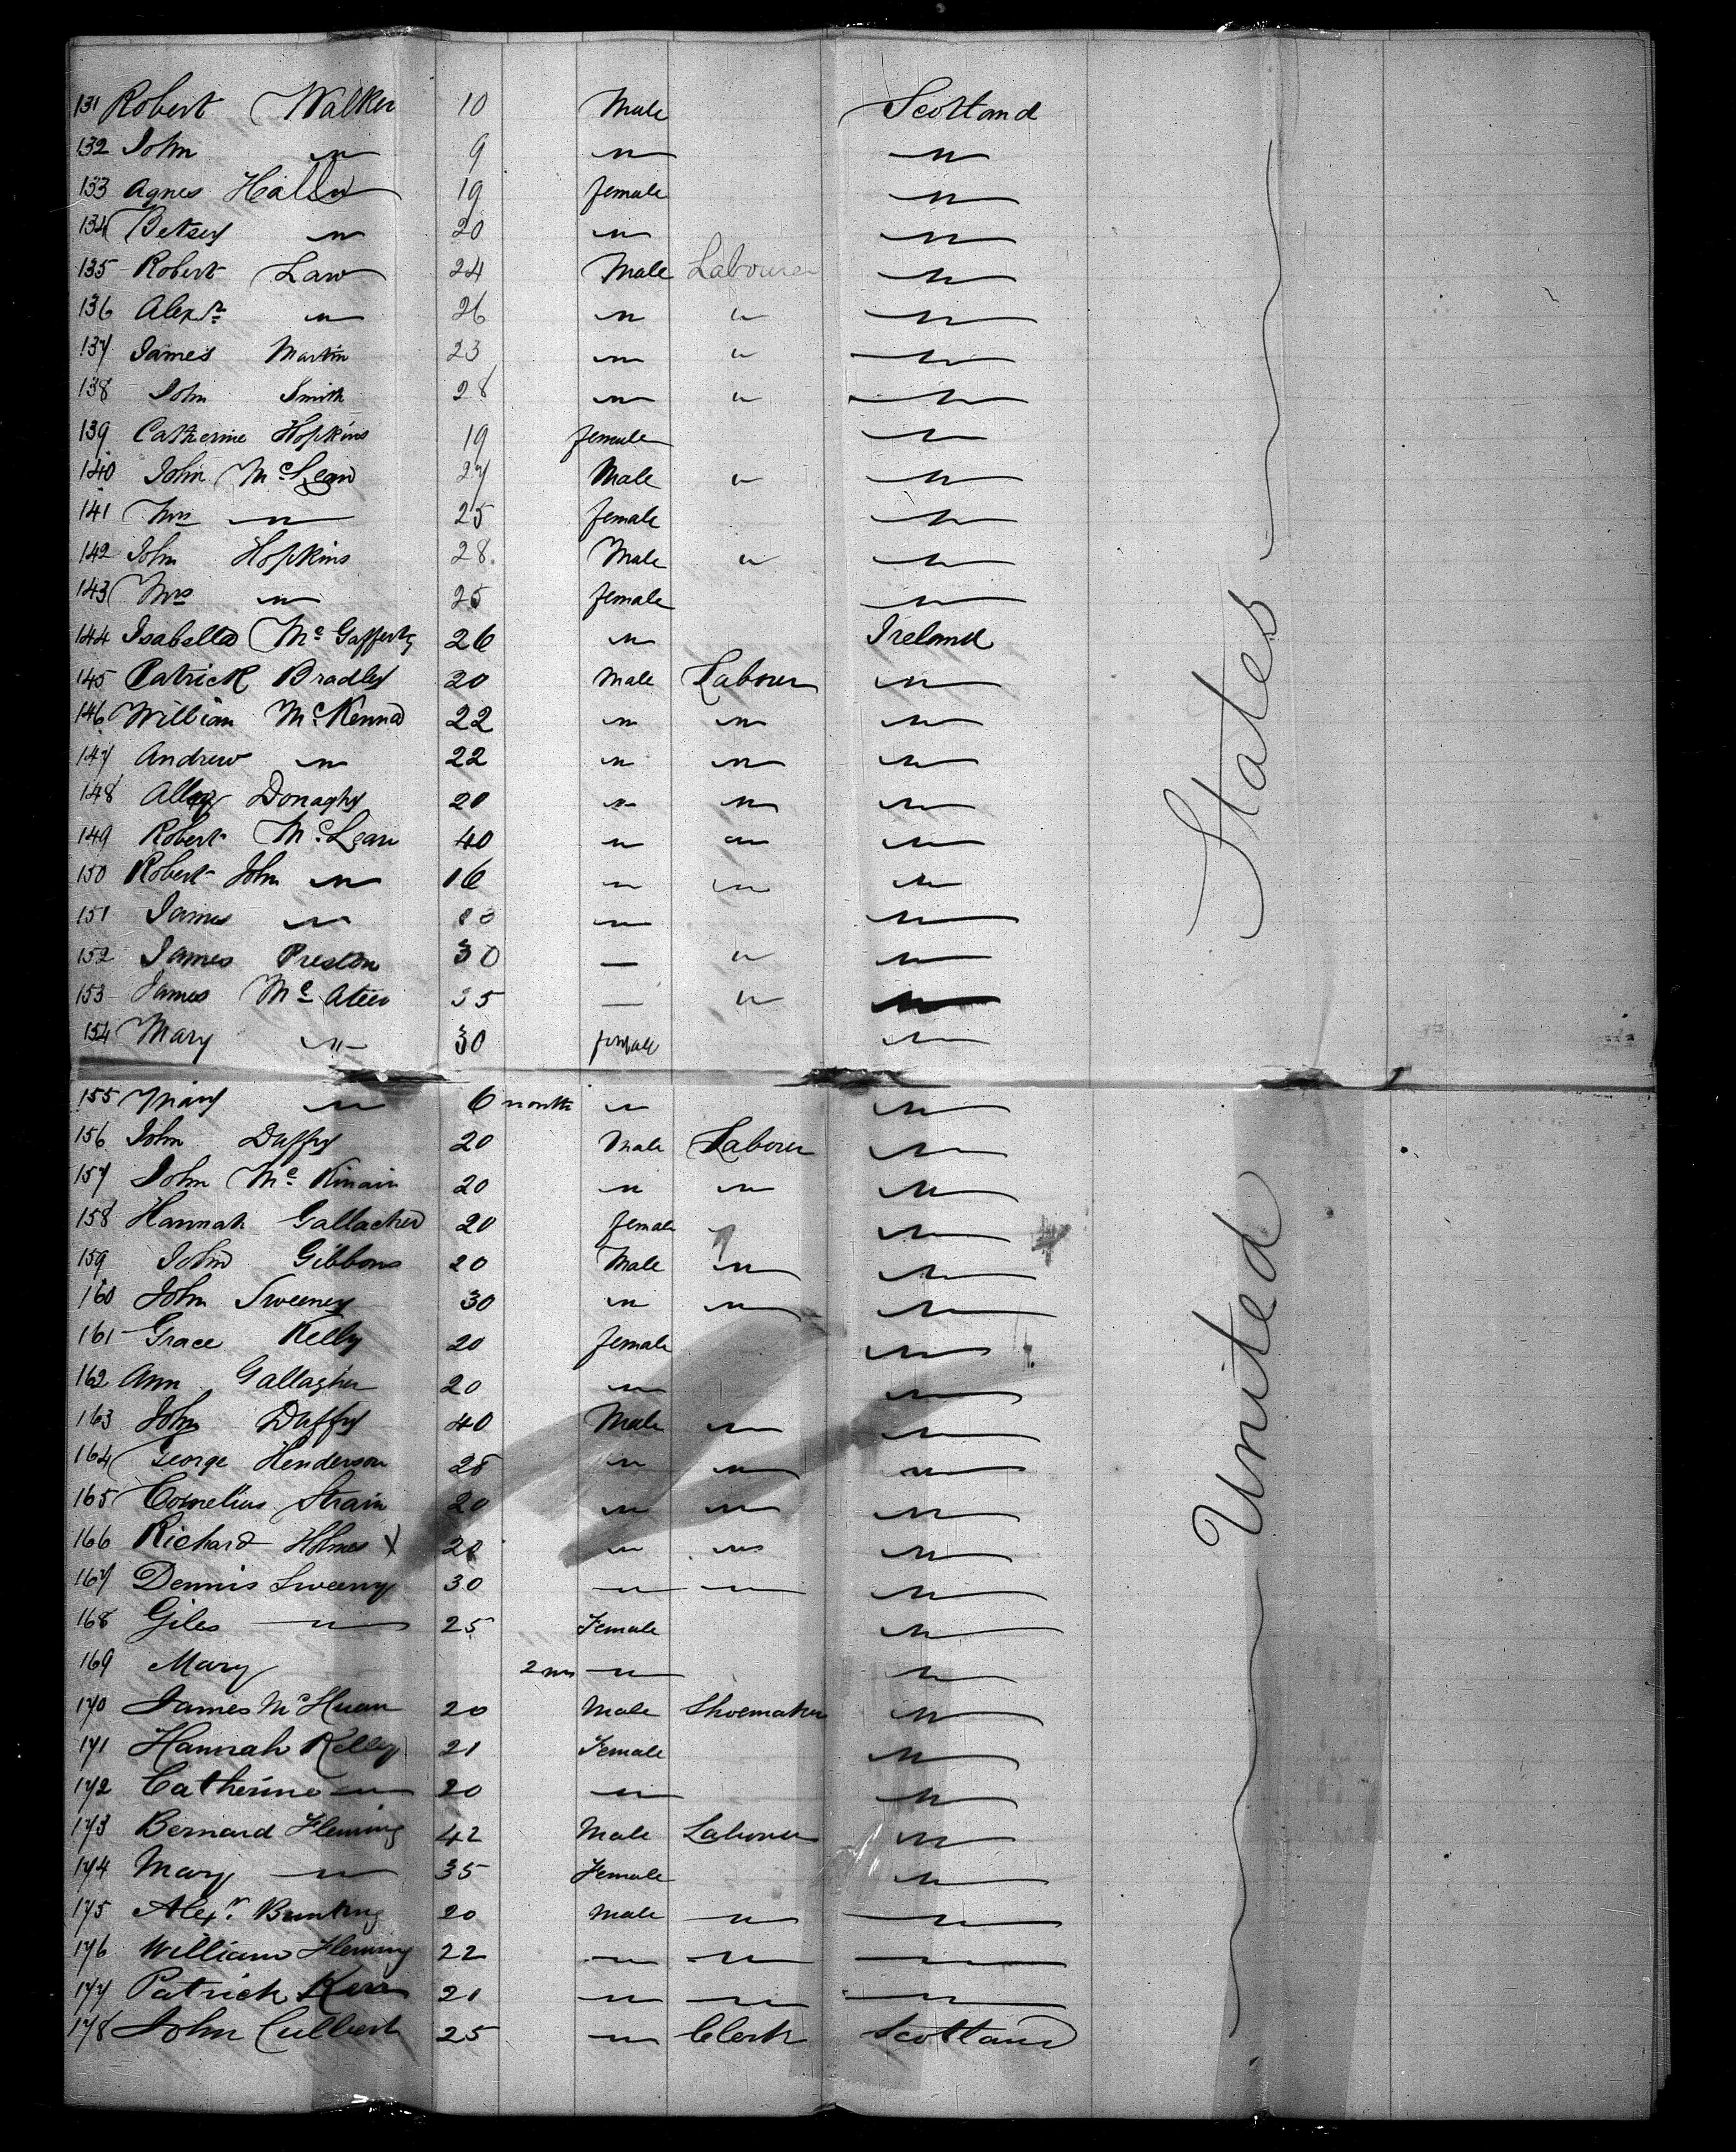 131 Robert Walker 10 Male Scotland
132 John " 9 " "
133 Agnes 19 female "
134 Betsey " 20 " "
135 Robert Law 24 Male Labourer "
136 Alexr " 26 " " "
137 James Martin 23 " " "
138 John Smith 28 " " "
139 Catherine Hopkins 19 female "
140 John McLean 27 Male " "
141 Mrs " 25 female "
142 John Hopkins 28. Male " "
143 Mrs " 25 female "
144 Isabella McGafferty 26 " Ireland
145 Patrick Bradley 20 Male Labourer "
146 William McKenna 22 " " "
147 Andrew " 22 " " "
148 Donaghy 20 " " "
149 Robert McLean 40 " " "
150 Robert John " 16 " " "
151 James " " "
152 James Preston 30 " " "
153 James McAteer 35 " " "
154 Mary " 30 female "
155 Mary " 6 months " "
156 John Duffy 20 Male Labourer "
157 John Mc 20 " " "
158 Hannah Gallacher 20 female "
159 John Gibbons 20 Male " "
160 John Sweeney 30 " " "
161 Grace Kelly 20 female "
162 Ann Gallagher 20 " "
163 John Duffy 40 Male " "
164 George Henderson 25 " " "
165 Cornelius Strain 20 " " "
166 Richard Holmes X " " "
167 Dennis Sweeny 30 " " "
168 Giles " 25 Female "
169 Mary 2 ms " "
170 James 20 Male Shoemaker "
171 Hannah Kelley 21 Female "
172 Catherine " 20 " "
173 Bernard Fleming 42 Male Labourer "
174 Mary " 35 Female "
175 Alexr. Bunting 20 Male " "
176 William Fleming 22 " " "
177 Patrick Kerr 21 " " "
178 John Culbert 25 " Clerk Scotland
United States